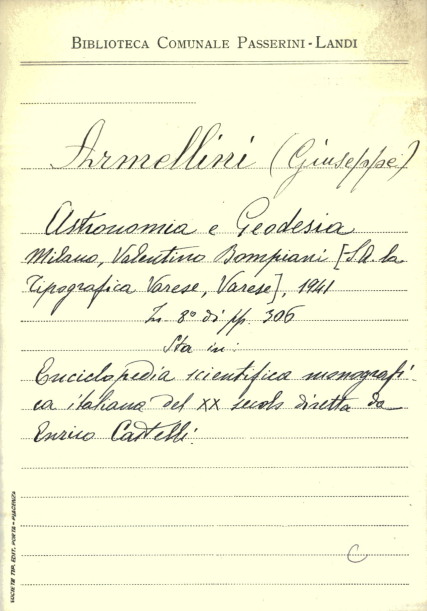 BIBLIOTECA COMUNALE PASSERINI-LANDI
Armellini (Giuseppe)
Astronomia e Geodesia
Milano, Valentino Bompiani [S.A. la
Tipografica Varese, Varese], 1941
In 8° di pp. 306
Sta in:
Enciclopedia scientifica monografi
ca italiana del XX secolo diretta da
Enrico Castelli.
C
SOCIETÀ TIP. EDIT. PORTA - PIACENZA